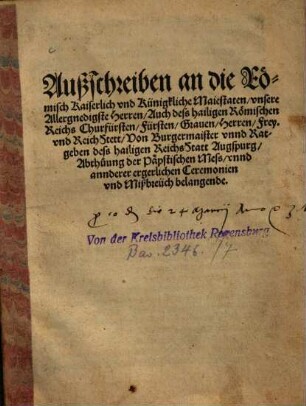 Außschreiben an die Rö-
misch Kaiserlich vnd Künigkliche Maiestaten/ vnsere
Allergnedigste Herren/ Auch deß hailigen Römischen
Reichs Churfürsten/ Fürsten/ Grauen/ Herren/ Frey.
vnd Reich Stett/ Von Burgermaister vnnd Rat-
geben deß hailigen Reichs Statt Augspurg/
Abthüung der Päpstischen Mess/ vnnd
annderer ergerlichen Ceremonien
vnd Mißbreüch belangende.
Von der Kreisbibliothek Regensburg
Bav. 2346. /7